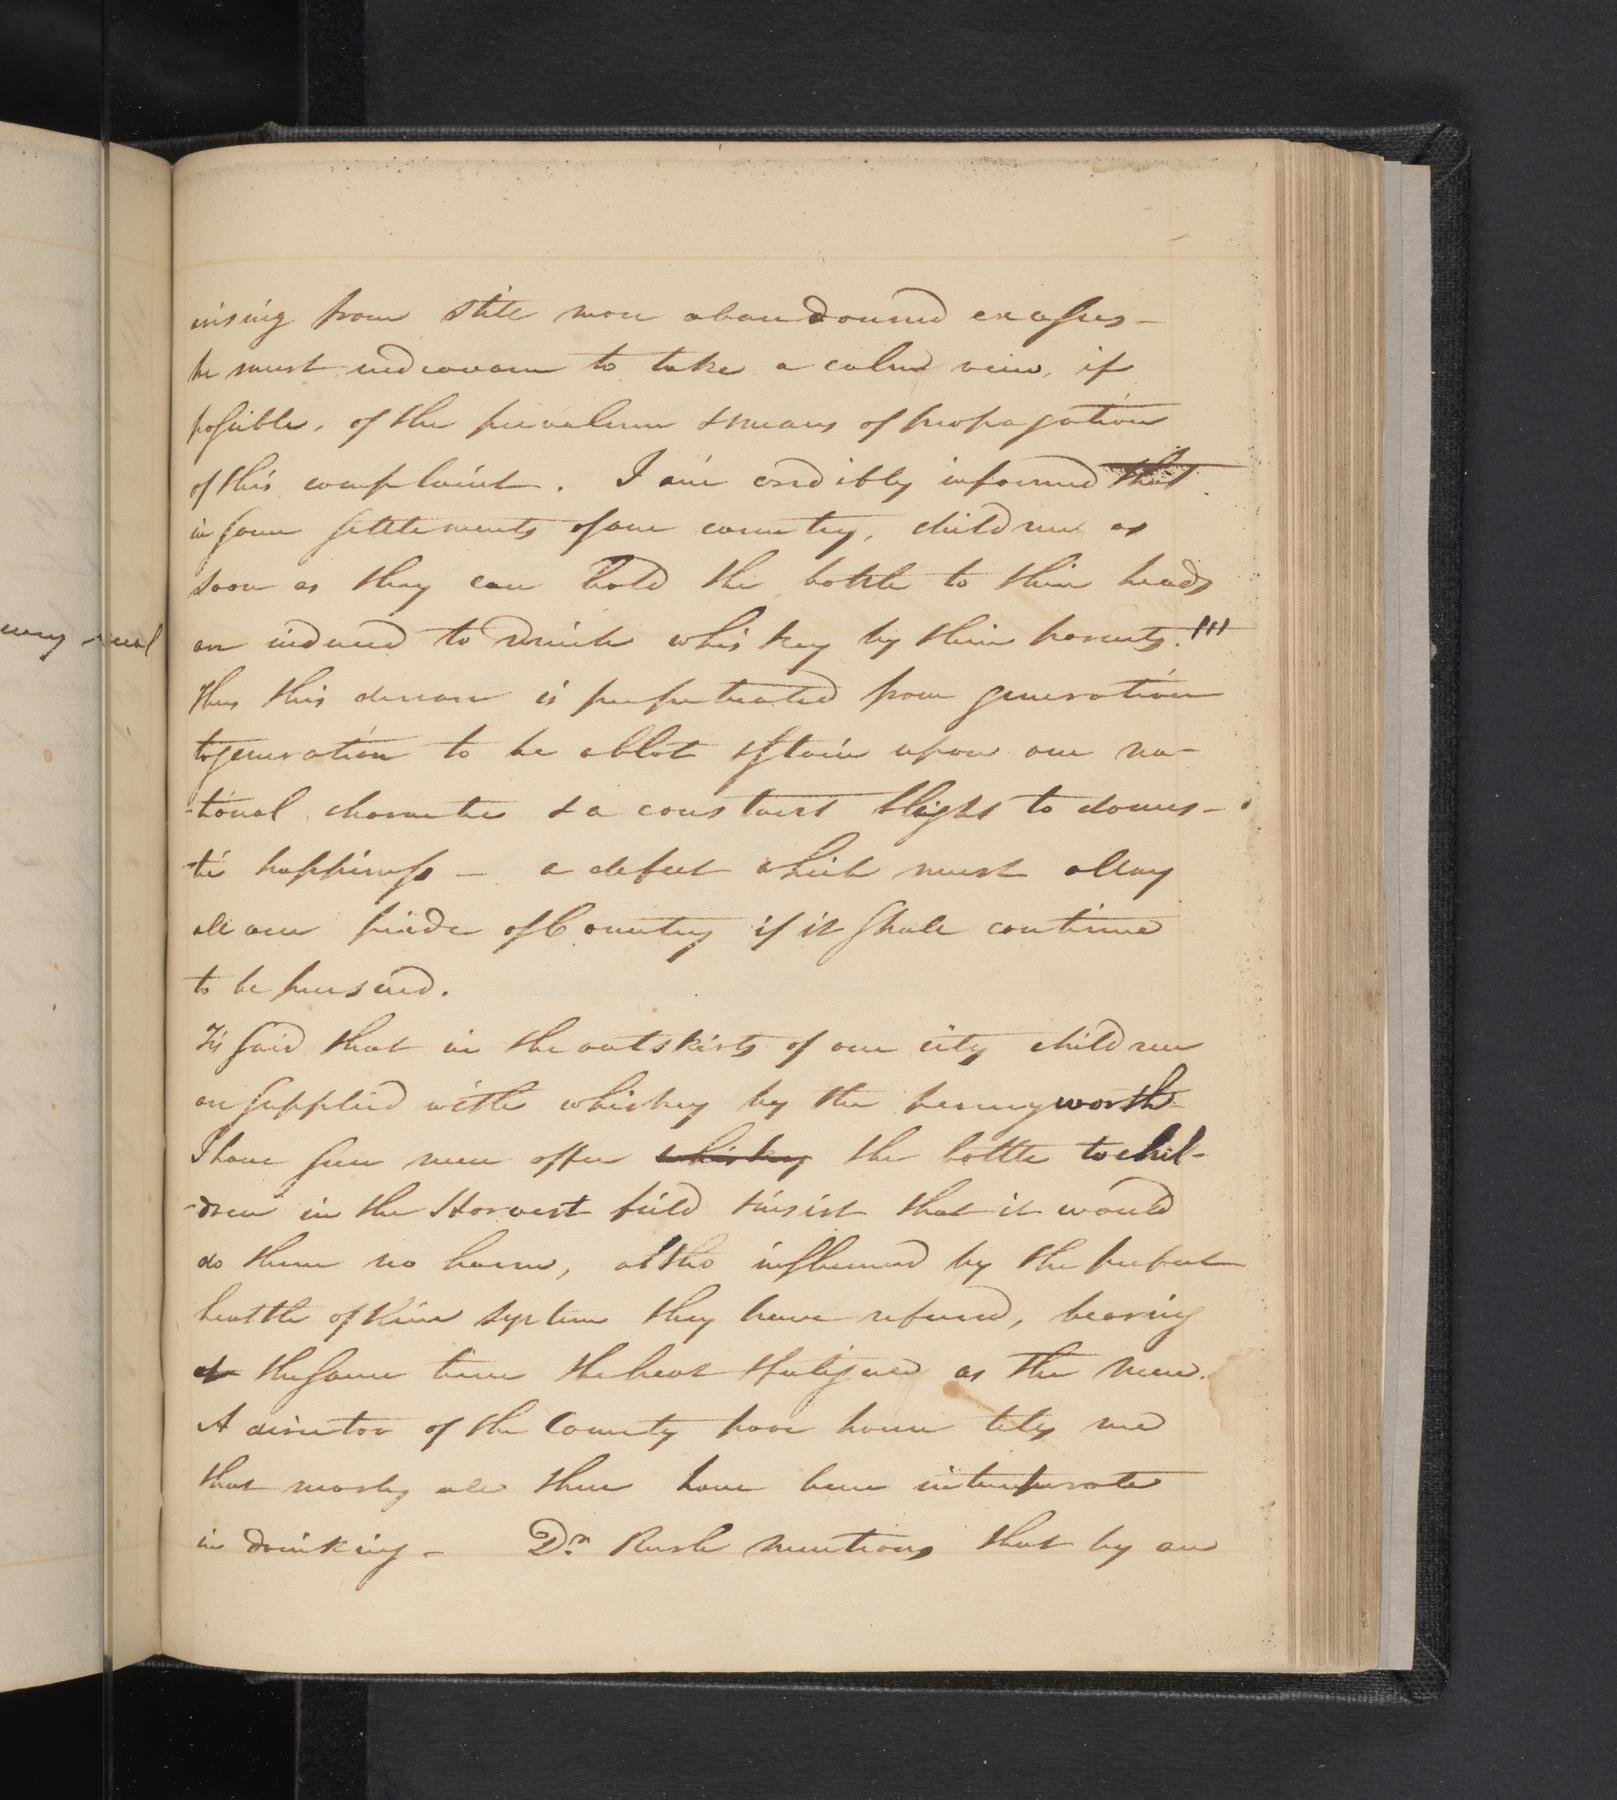 arising from still more abandoned excesses—
he must endeavour to take a calm view, if
possible, of the prevalence & means of propagation
of this complaint. I am credibly informed that
in some settlements of our country, children as
soon as they can hold the bottle to their heads
are induced to drink whiskey by their parents.!!!
Thus this disease is perpetuated from generation
to generation to be a blot & stain upon our na-
-tional character & a constant blight to domes-
-tic happiness— a defect which must allay
all our pride of Country if it shall continue
to be pursued.
Tis said that in the outskirts of our city children
are supplied with whiskey by the pennyworth
I have seen men offer whiskey the bottle to chil-
-dren in the Harvest field & insist that it would
do them no harm, altho influenced by the perfect
health of their system they have refused, bearing
at the same time the heat & fatigue as the men.
A director of the County poor house tells me
that nearly all there have been intemperate
in drinking— Dr. Rush mentions that by an